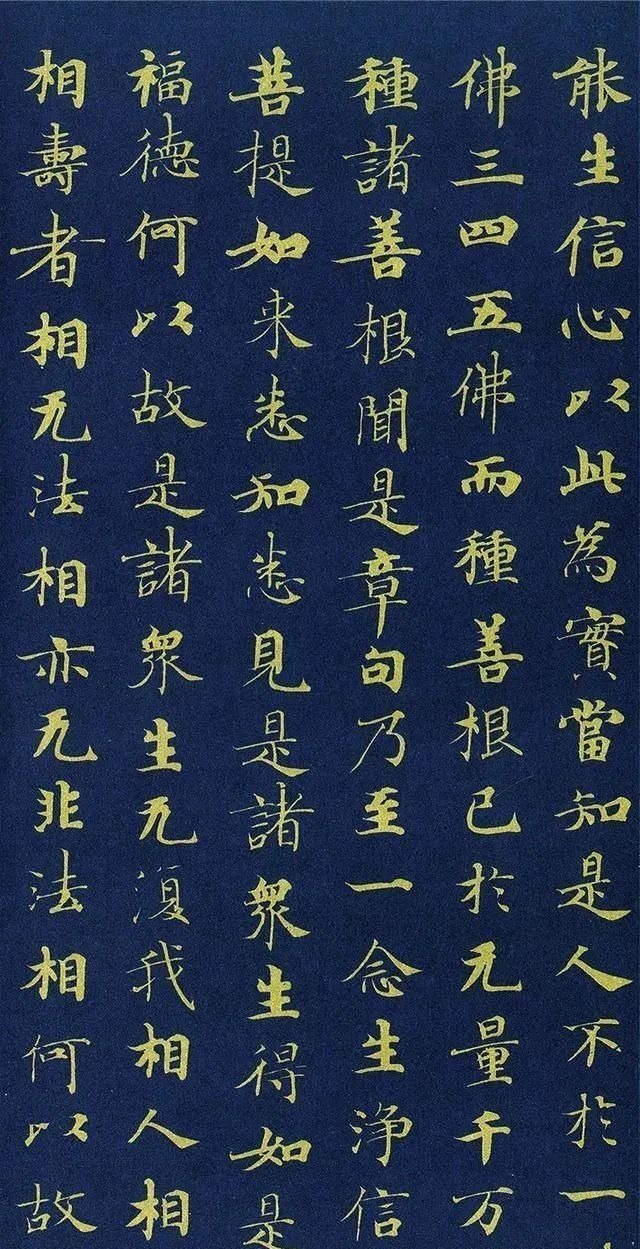 能生信心以此為實當知是人不於一
佛三四五佛而種善根已於无量千万
種諸善根聞是章句乃至一念生淨信
菩提如来悉知悉見是諸衆生得如是
福德何以故是諸衆生无復我相人相
相壽者相无法相亦无非法相何以故